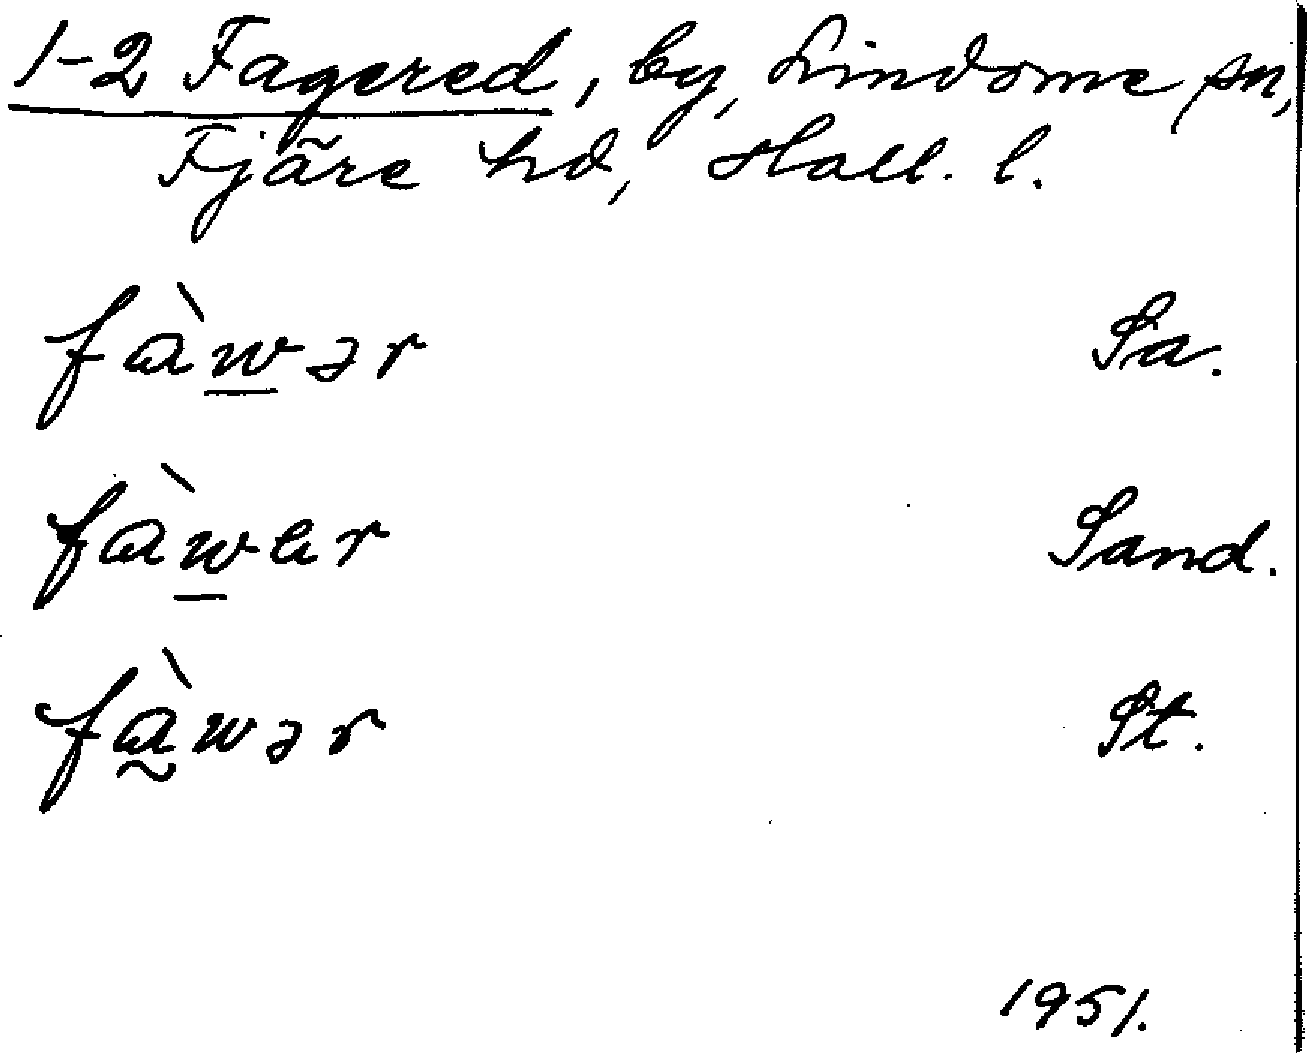 1-2 Fagered, by, Lindome sn,
Fjäre hd, Hall. l.
fàwər Sa.
fàwer Sand.
fàwər St.
1951.